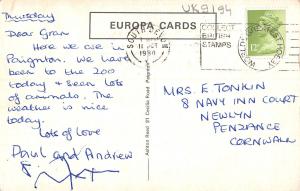 UK9194
Thursday
EUROPA CARDS
Dear Gran
Here we are in
Paignton. We have
been to the zoo
today & seen lots
of animals. The
weather is nice
today.
Lots of love
Paul and Andrew
COLLECT
BRITISH
STAMPS
1980
12P
MRS. E TONKIN
8 NAVY INN COURT
NEWLYN
PENZANCE
CORNWALL